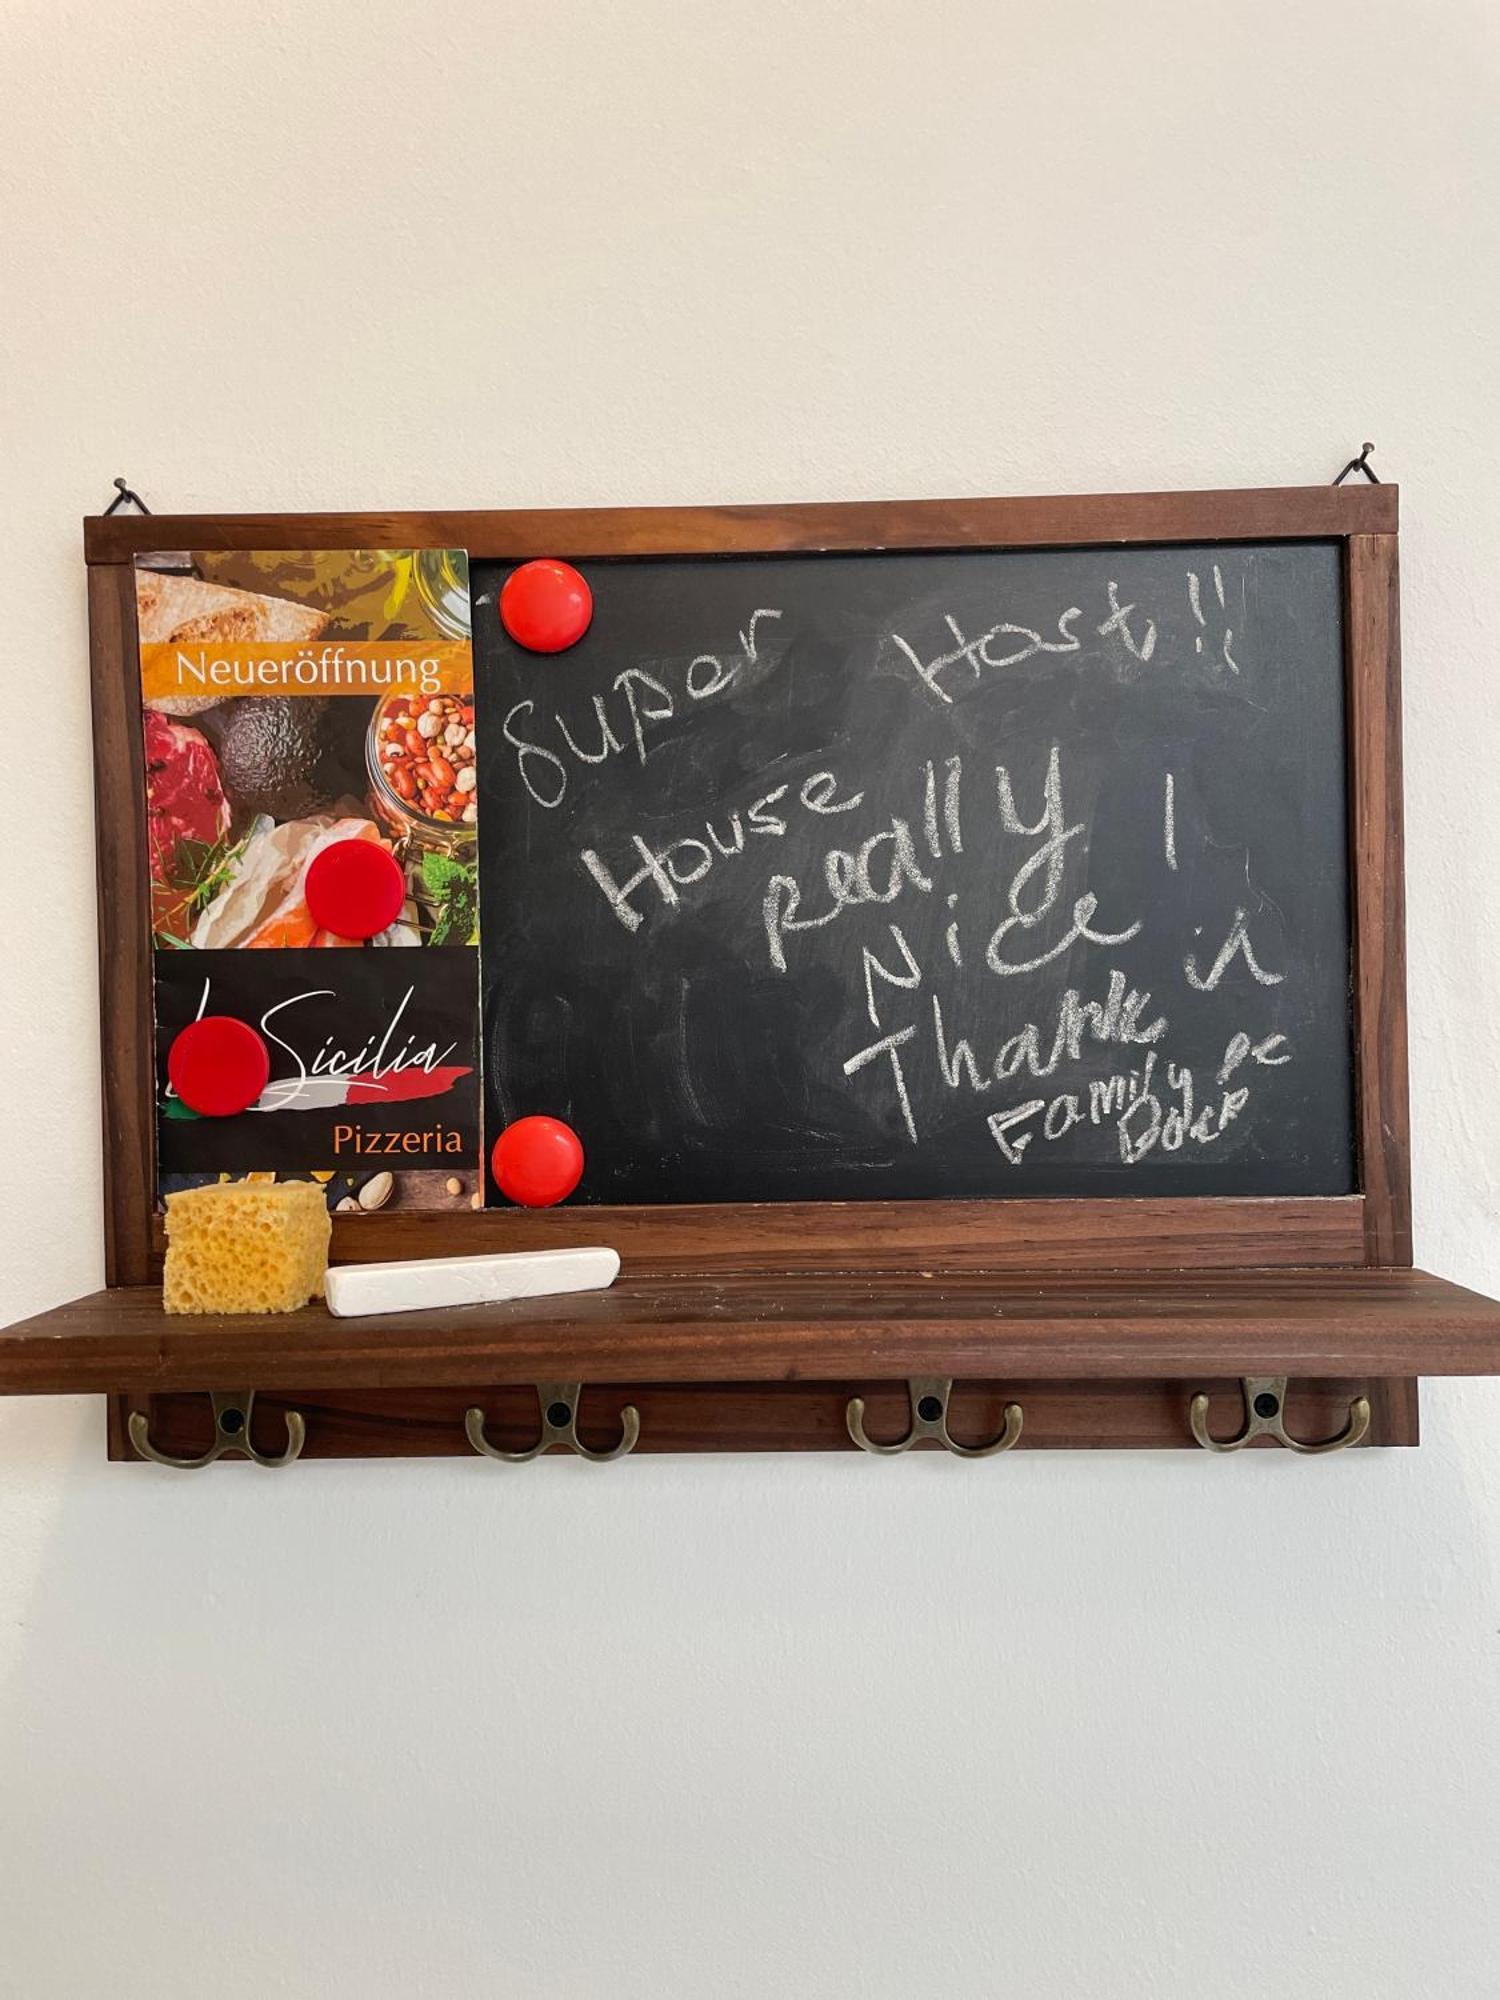 Neueröffnung
Sicilia
Pizzeria
Super Host!!
House
Really
Nice
Thank
Family